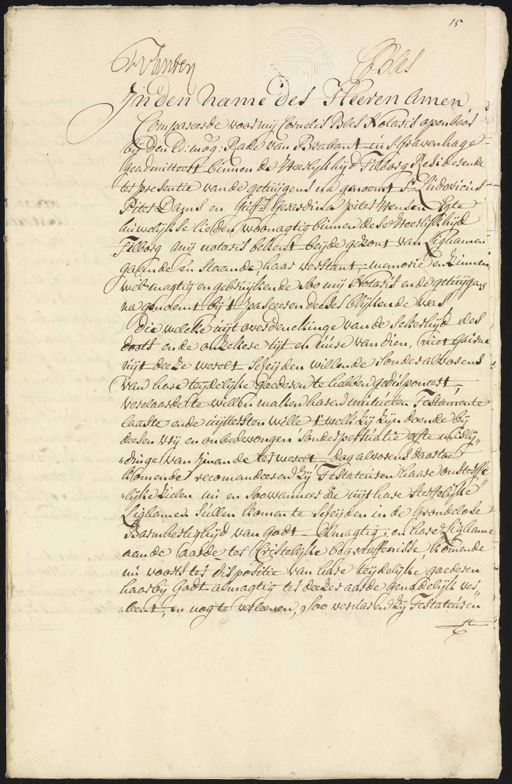 15
In den name des Heeren Amen
Compareerde voor mij Cornelis Bles Notaris openbaar
bij den Ed: mog: Rade van Brabant in s'Gravenhage
geadmitteert binnen de Heerlijkhijd Tilborg Residerende
ter presentie van de getuijgens na genoemt Sr. Ludovicus
Pites Dams en Juffr. Gerardina pites Hensen Egte
huwelijkse lieden woonagtig binnen dese Heerlijkhijd
Tilborg mij notaris bekent beijde gezont van Lighamen
gaende en staende haar verstant, memorie en zinnen
wel magtig en gebruijkende soo mij Notaris en de getuijgen
na genoemt bij t' passeren deeses blijkende was
Die welke uijt overdenckinge van de sekerhijd des
doots en de onsekere tijt en uure van dien, niet gaerne
uijt deeze werelt scheijden willende sonder alvorens
van hare teijdelijke goederen te hebben gedisponeert,
verclaerde te willen maken haren mutueelen Testamente
laatste ende uijttersten wille t' welk zij zijn doende bij
deesen vrij en onbedwongen sonder persuatie ofte mislij„
„dinge van ijmande ter werelt, dog alvorens daer toe
komende recomandeeren zij Testateuren haare onsterffe
„lijke zielen nu en soo wanneer die uijt hare sterffelijke
Lighamen sullen komen te scheijden in de grondelose
Barmhertighijd van Godt Almagtig, en hare Lighame
aende aarde tot Christelijke begraffenisse komende
nu voorts ter dispositie van hare teijdelijke goederen
haar bij Godt almagtig ter deeser aarde genadelijk ver„
„leent, en nog te verleenen, Soo verclaren zij Testateuren